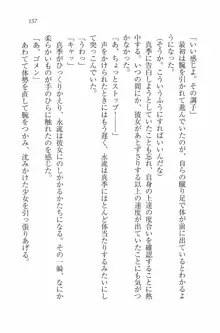 157
「いい感じよ、その調子」
最初は腕を引かれて進んでいたのが、自らの蹴り足で体が前に出るようになっていた。
（そうか、こういうふうにすればいいんだな）
真季に告白しようとしていたことも忘れ、自身の上達の度合いを確認することに夢中にな
る。いつの間にか、彼女が下がる速度以上の速度が出ていたことにも気がつかなかった。
「あ、ちょっとストップ――」
真季がびっくりしたような声をあげたときには、永流は真季に体当たりするようにし
て突っこんでいた。
「うわっ」
「キャッ」
柔らかいものが手のひらに触れたのを感じた。永流は彼女にのしかかる。その一瞬、なにか
「あ、ゴメン」
あわてて体勢を立て直して腕をつかみ、沈みかけた少女を引っ張りあげる。